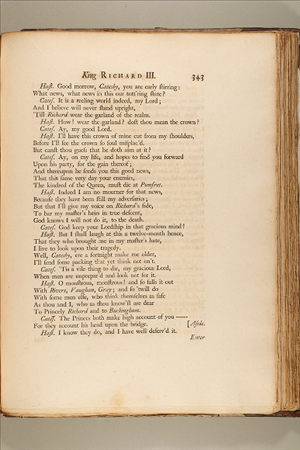 King RICHARD III. 343
Hast. Good morrow, Catesby, you are early stirring:
What news, what news in this our tott'ring state?
Cates. It is a reeling world indeed, my Lord;
And I believe will never stand upright,
Till Richard wear the garland of the realm.
Hast. How! wear the garland? dost thou mean the crown?
Cates. Ay, my good Lord.
Hast. I'll have this crown of mine cut from my shoulders,
Before I'll see the crown so foul misplac'd.
But canst thou guess that he doth aim at it?
Cates. Ay, on my life, and hopes to find you forward
Upon his party, for the gain thereof;
And thereupon he sends you this good news,
That this same very day your enemies,
The kindred of the Queen, must die at Pomfret.
Hast. Indeed I am no mourner for that news,
Because they have been still my adversaries;
But that I'll give my voice on Richard's side,
To bar my master's heirs in true descent,
God knows I will not do it, to the death.
Cates. God keep your Lordship in that gracious mind!
Hast. But I shall laugh at this a twelve-month hence,
That they who brought me in my master's hate,
I live to look upon their tragedy.
Well, Catesby, ere a fortnight make me older,
I'll send some packing that yet think not on't.
Cates. 'Tis a vile thing to die, my gracious Lord,
When men are unprepar'd and look not for it.
Hast. O monstrous, monstrous! and so falls it out
With Rivers, Vaughan, Gray; and so 'twill do
With some men else, who think themselves as safe
As thou and I, who as thou know'st are dear
To Princely Richard and to Buckingham.
Cates. The Princes both make high account of you —
For they account his head upon the bridge. [Aside.
Hast. I know they do, and I have well deserv'd it.
Enter